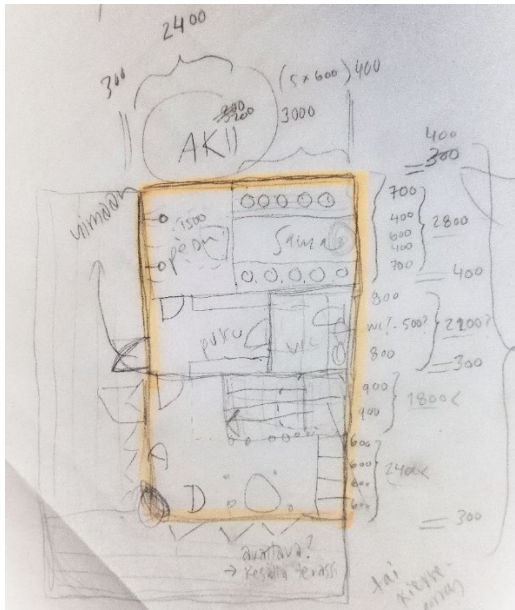 2400
300
(5 x 600) 400
3000
AKII
400
300
uimaan
1500
pesu
Sauna
700
400
600
400
700
2800
400
puku
WC
900
WC! -500?
800
2200?
300
900
900
1800<
600
600
600
600
2400<
300
avattava?
→ kesällä terassi
tai
kierre-